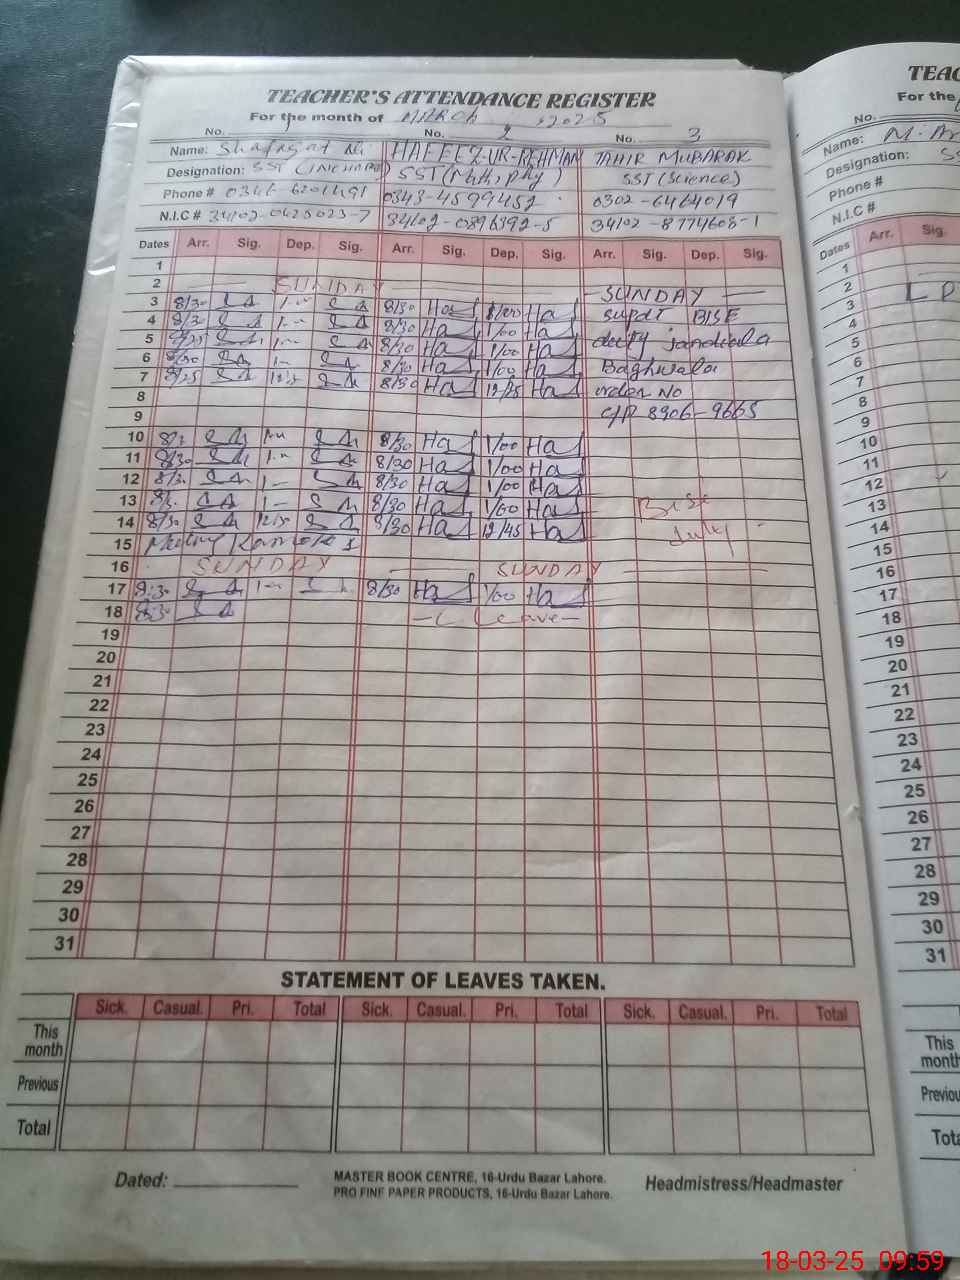 TEACHER'S ATTENDANCE REGISTER
For the month of MARCH 2025
No. 1 No. 2 No. 3
Name: Shafqat Ali HAFEEZ-UR-REHMAN TAHIR MUBARAK
Designation: SST (INCHARGE) SST (Math, phy) SST (Science)
Phone # 0346-6201491 0343-4599452 0302-6464019
N.I.C # 34102-0425023-7 34102-0896392-5 34102-8774608-1
Dates Arr. Sig. Dep. Sig. Arr. Sig. Dep. Sig. Arr. Sig. Dep. Sig.
1
2 SUNDAY SUNDAY
3 8/30 8/30 Haf Haf supdt BISE
4 8/30 Haf 1/00 Haf
5 8/30 Haf 1/00 Haf duty jandiala
6 8/30 Haf 1/00 Haf Baghwala
7 8/25 8/30 Haf 12/25 Haf order No
8
9 C/R 8906-9665
10 8/30 Haf 1/00 Haf
11 8/30 8/30 Haf 1/00 Haf
12 8/30 Haf 1/00 Haf
13 8/30 Haf 1/00 Haf Bise
14 8/30 12/30 8/30 Haf 12/45 Haf Duty
15 Meeting
16 SUNDAY SUNDAY
17 8:30 8/30 Haf 1/00 Haf
18 8:30 C Leave
19
20
21
22
23
24
25
26
27
28
29
30
31
STATEMENT OF LEAVES TAKEN.
Sick. Casual. Pri. Total Sick. Casual. Pri. Total Sick. Casual. Pri. Total
This month
Previous
Total
Dated:
MASTER BOOK CENTRE, 16-Urdu Bazar Lahore.
PRO FINE PAPER PRODUCTS, 16-Urdu Bazar Lahore.
Headmistress/Headmaster
TEAC
For the
No.
Name: M. Ar
Designation: SS
Phone #
N.I.C #
Dates Arr. Sig.
1
2
3
4
5
6
7
8
9
10
11
12
13
14
15
16
17
18
19
20
21
22
23
24
25
26
27
28
29
30
31
This month
Previou
Tota
18-03-25 09:59